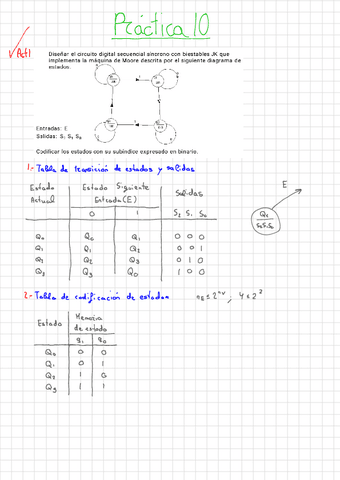 Práctica 10
✓ Act1
Diseñar el circuito digital secuencial síncrono con biestables JK que
implementa la máquina de Moore descrita por el siguiente diagrama de
estados:
Entradas: E
Salidas: S₂ S₁ S₀
Codificar los estados con su subíndice expresado en binario.
1.- Tabla de transición de estados y salidas
Estado Estado Siguiente Salidas
Actual Entrada (E)
0 1 S₂ S₁ S₀
Q₀ Q₀ Q₁ 0 0 0
Q₁ Q₁ Q₂ 0 0 1
Q₂ Q₂ Q₃ 0 1 0
Q₃ Q₃ Q₀ 1 0 0
E
2.- Tabla de codificación de estados
Estado Memoria
de estado
q₁ q₀
Q₀ 0 0
Q₁ 0 1
Q₂ 1 0
Q₃ 1 1